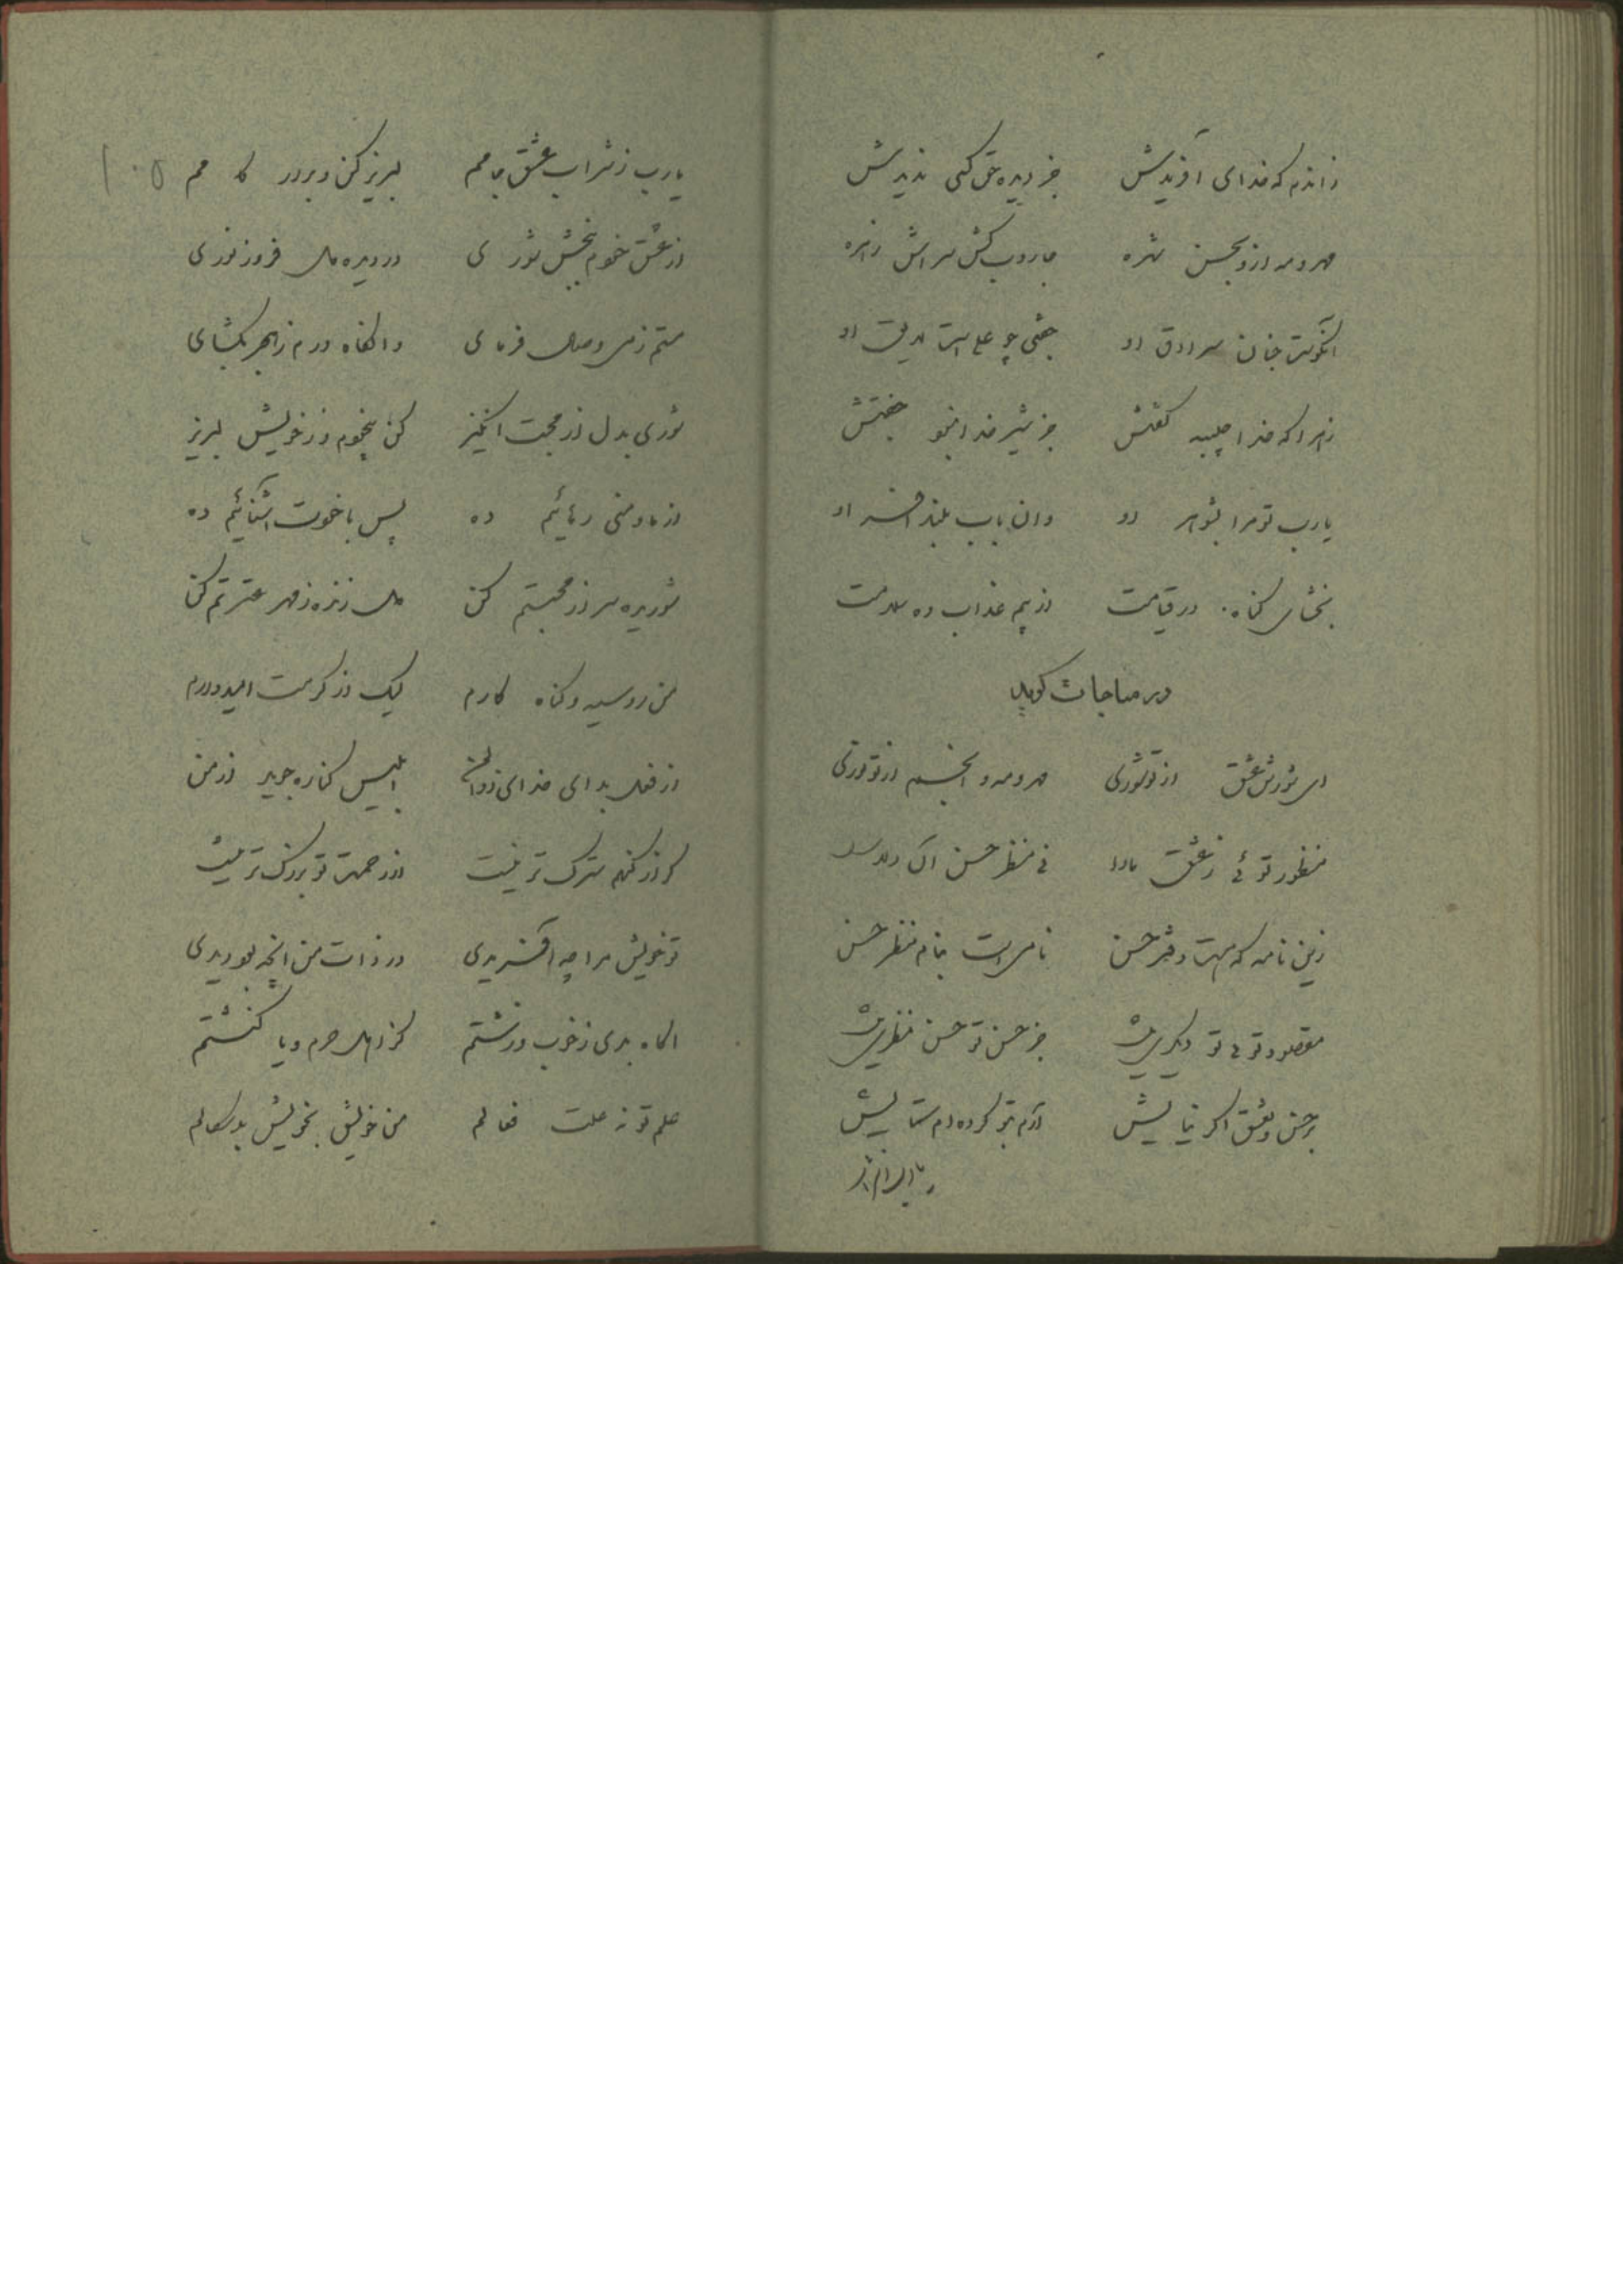 زاندم که خدای آفریدش جز دیده حق کسی ندیدش
مهر و مه ازو بحسن شهره جاروب کش سراش زهره
آنکوست جنان سرادق او جفتی چو علی است لایق او
زهرا که خدا حبیبه گفتش جز شیر خدا نبود جفتش
یارب تو مرا بشوهر او وان باب بلند اختر او
بخشای گناه در قیامت از بیم عذاب ده سلامت
در مناجات گوید
ای شورش عشق از تو شوری مهر و مه و انجم از تو نوری
منظور توئی ز عشق ما را فی منظر حسن
زین نامه که هست دفتر حسن نامی است بنام منظر حسن
مقصود توئی تو دیگری نیست جز حسن تو حسن منظری نیست
بر حسن و عشق اگر نیایش آرم بتو کرده‌ام ستایش
یارب ز شراب عشق جامم لبریز کن و برآور کامم ۱۰۵
از عشق خودم ببخش شوری در دیده دل فروز نوری
مستم ز می وصال فرمای وانگاه درم ز هجر بگشای
شوری بدل از محبت انگیز کن بیخودم و ز خویش لبریز
از ما و منی رهائیم ده پس با خودت آشنائیم ده
شوریده سر از محبتم کن دل زنده ز مهر عترتم کن
من روسیه و گناه کارم لیک از کرمت امیدوارم
از فعل بد ای خدای ذوالمن ابلیس کناره جوید از من
گر از گنهم سترک تر نیست از رحمت تو بزرگ تر نیست
تو خویش مرا چه آفریدی در ذات من آنچه بود دیدی
آگاه بدی ز خوب و زشتم کز اهل حرم و یا کنشتم
علم تو نه علت فعالم من خویش بخویش بدسگالم